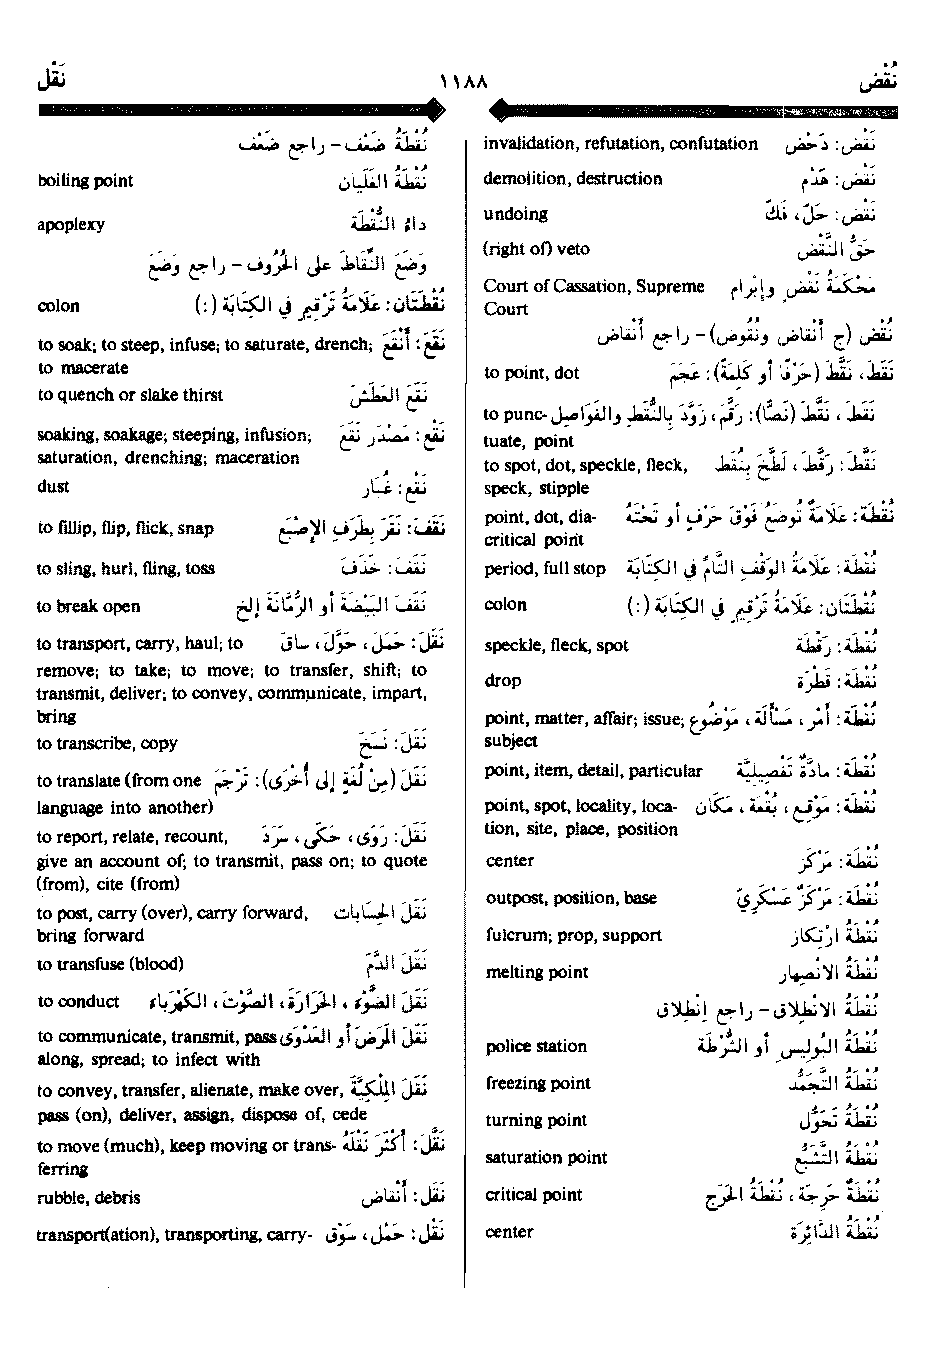 نُقْض
١١٨٨
نَقَل
نَقْض: دَحْض invalidation, refutation, confutation
نَقْض: هَدْم demolition, destruction
نَقْض: حَلّ، فَكّ undoing
حَقُّ النَّقْض (right of) veto
مَحْكَمَةُ نَقْضٍ وإبْرام Court of Cassation, Supreme
Court
نُقْض (ج أَنْقَاض ونُقُوض) – راجع أَنْقَاض
نَقَطَ، نَقَّطَ (حَرْفًا أو كَلِمَةً): عَجَمَ to point, dot
نَقَطَ، نَقَّطَ (نَصًّا): رَقَّمَ، زَوَّدَ بِالنُّقَطِ والفَوَاصِل to punc-
tuate, point
نَقَّطَ: رَقَّطَ، لَطَّخَ بِنُقَط to spot, dot, speckle, fleck,
speck, stipple
نُقْطَة: عَلامَةٌ تُوضَعُ فَوْقَ حَرْفٍ أو تَحْتَهُ point, dot, dia-
critical point
نُقْطَة: عَلامَةُ الوَقْفِ التَّامِّ في الكِتَابَة period, full stop
نُقْطَتَان: عَلامَةُ تَرْقِيمٍ في الكِتابَة (:) colon
نُقْطَة: رُقْطَة speckle, fleck, spot
نُقْطَة: قَطْرَة drop
نُقْطَة: أَمْر، مَسْأَلَة، مَوْضُوع point, matter, affair; issue;
subject
نُقْطَة: مادَّةٌ تَفْصِيلِيَّة point, item, detail, particular
نُقْطَة: مَوْقِع، بُقْعَة، مَكَان point, spot, locality, loca-
tion, site, place, position
نُقْطَة: مَرْكَز center
نُقْطَة: مَرْكَزٌ عَسْكَرِيّ outpost, position, base
نُقْطَةُ ارْتِكاز fulcrum; prop, support
نُقْطَةُ الانْصِهار melting point
نُقْطَةُ الانْطِلاق – راجع اِنْطِلاق
نُقْطَةُ البُولِيس أو الشُّرْطَة police station
نُقْطَةُ التَّجَمُّد freezing point
نُقْطَةُ تَحَوُّل turning point
نُقْطَةُ التَّشَبُّع saturation point
نُقْطَةٌ حَرِجَة، نُقْطَةُ الحَرَج critical point
نُقْطَةُ الدَّائِرَة center
نُقْطَةُ ضَعْف – راجع ضَعْف
نُقْطَةُ الغَلَيَان boiling point
داءُ النُّقْطَة apoplexy
وَضَعَ النِّقَاطَ على الحُرُوف – راجع وَضَعَ
نُقْطَتَان: عَلامَةُ تَرْقِيمٍ في الكِتَابَة (:) colon
نَقَعَ: أَنْقَعَ to soak; to steep, infuse; to saturate, drench;
to macerate
نَقَعَ العَطَشَ to quench or slake thirst
نَقْع: مَصْدَر نَقَعَ soaking, soakage; steeping, infusion;
saturation, drenching; maceration
نَقْع: غُبَار dust
نَقَفَ: نَقَرَ بِطَرَفِ الإصْبَع to fillip, flip, flick, snap
نَقَفَ: خَذَفَ to sling, hurl, fling, toss
نَقَفَ البَيْضَةَ أو الرُّمَّانَةَ إلخ to break open
نَقَلَ: حَمَلَ، حَوَّلَ، ساقَ to transport, carry, haul; to
remove; to take; to move; to transfer, shift; to
transmit, deliver; to convey, communicate, impart,
bring
نَقَلَ: نَسَخَ to transcribe, copy
نَقَلَ (مِنْ لُغَةٍ إلى أُخْرَى): تَرْجَمَ to translate (from one
language into another)
نَقَلَ: رَوَى، حَكَى، سَرَدَ to report, relate, recount,
give an account of; to transmit, pass on; to quote
(from), cite (from)
نَقَلَ الحِسَابَات to post, carry (over), carry forward,
bring forward
نَقَلَ الدَّمَ to transfuse (blood)
نَقَلَ الضَّوْءَ، الحَرَارَةَ، الصَّوْتَ، الكَهْرَباء to conduct
نَقَلَ المَرَضَ أو العَدْوَى to communicate, transmit, pass
along, spread; to infect with
نَقَلَ المِلْكِيَّةَ to convey, transfer, alienate, make over,
pass (on), deliver, assign, dispose of, cede
نَقَّلَ: أَكْثَرَ نَقْلَهُ to move (much), keep moving or trans-
ferring
نَقَل: أَنْقَاض rubble, debris
نَقْل: حَمْل، سَوْق transport(ation), transporting, carry-